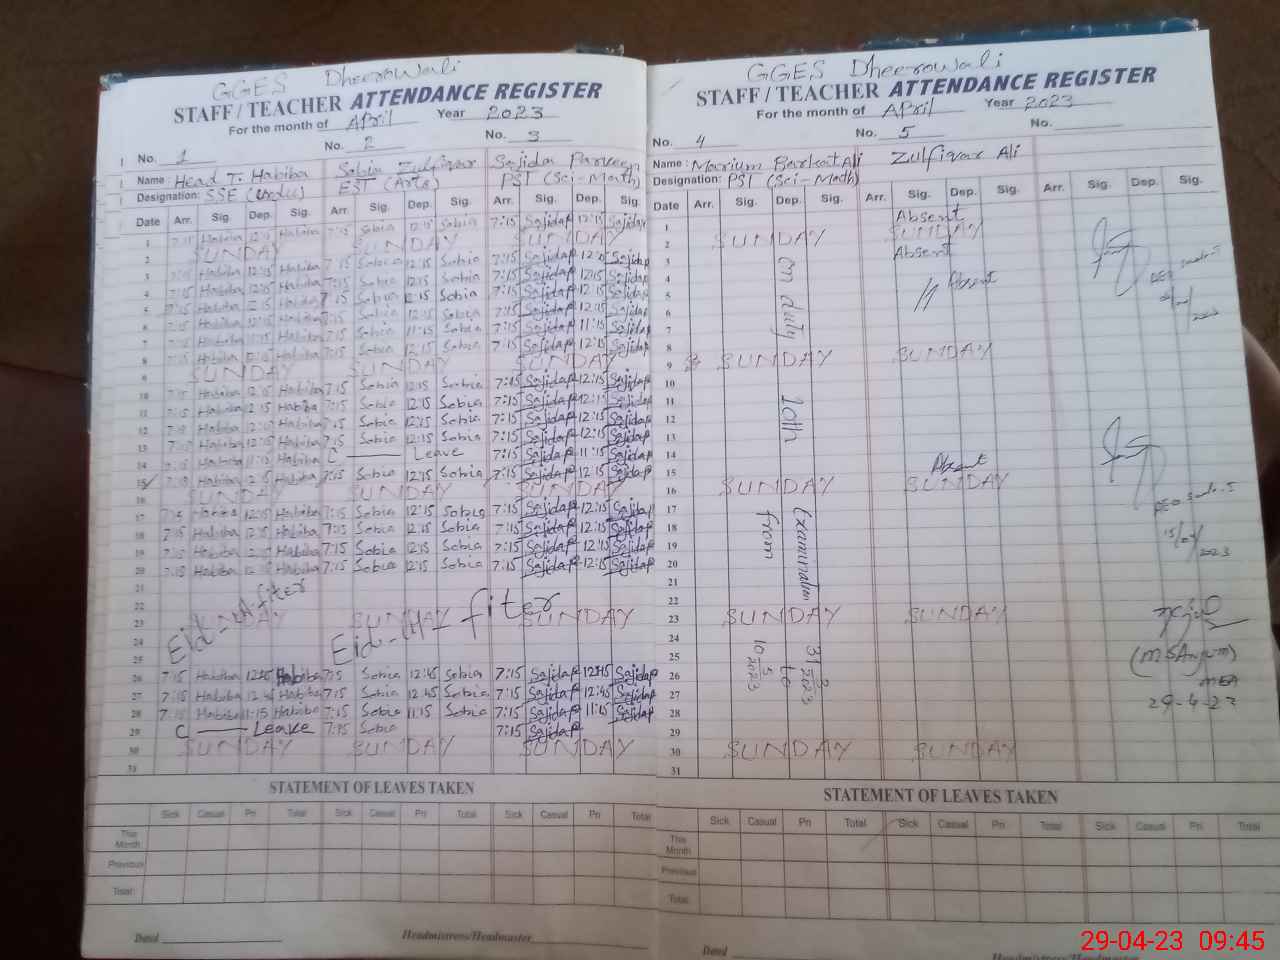 GGES Dheerowali
STAFF/TEACHER ATTENDANCE REGISTER
For the month of April Year 2023
No. 1 No. 2 No. 3
Name: Head T. Habiba Sobia Zulfiqar Sajida Parveen
Designation: SSE (Urdu) EST (Arts) PST (Sci-Math)
Date Arr. Sig. Dep. Sig. Arr. Sig. Dep. Sig. Arr. Sig. Dep. Sig.
1 7:15 Habiba 12:15 Habiba 7:15 Sobia 12:15 Sobia 7:15 Sajidap 12:15 Sajidap
2 SUNDAY SUNDAY SUNDAY
3 7:15 Habiba 12:15 Habiba 7:15 Sobia 12:15 Sobia 7:15 Sajidap 12:15 Sajidap
4 7:15 Habiba 12:15 Habiba 7:15 Sobia 12:15 Sobia 7:15 Sajidap 12:15 Sajidap
5 7:15 Habiba 12:15 Habiba 7:15 Sobia 12:15 Sobia 7:15 Sajidap 12:15 Sajidap
6 7:15 Habiba 12:15 Habiba 7:15 Sobia 12:15 Sobia 7:15 Sajidap 12:15 Sajidap
7 7:15 Habiba 11:15 Habiba 7:15 Sobia 11:15 Sobia 7:15 Sajidap 11:15 Sajidap
8 7:15 Habiba 12:15 Habiba 7:15 Sobia 12:15 Sobia 7:15 Sajidap 12:15 Sajidap
9 SUNDAY SUNDAY SUNDAY
10 7:15 Habiba 12:15 Habiba 7:15 Sobia 12:15 Sobia 7:15 Sajidap 12:15 Sajidap
11 7:15 Habiba 12:15 Habiba 7:15 Sobia 12:15 Sobia 7:15 Sajidap 12:15 Sajidap
12 7:15 Habiba 12:15 Habiba 7:15 Sobia 12:15 Sobia 7:15 Sajidap 12:15 Sajidap
13 7:15 Habiba 12:15 Habiba 7:15 Sobia 12:15 Sobia 7:15 Sajidap 12:15 Sajidap
14 7:15 Habiba 11:15 Habiba C — Leave 7:15 Sajidap 11:15 Sajidap
15 7:15 Habiba 12:15 Habiba 7:15 Sobia 12:15 Sobia 7:15 Sajidap 12:15 Sajidap
16 SUNDAY SUNDAY SUNDAY
17 7:15 Habiba 12:15 Habiba 7:15 Sobia 12:15 Sobia 7:15 Sajidap 12:15 Sajidap
18 7:15 Habiba 12:15 Habiba 7:15 Sobia 12:15 Sobia 7:15 Sajidap 12:15 Sajidap
19 7:15 Habiba 12:15 Habiba 7:15 Sobia 12:15 Sobia 7:15 Sajidap 12:15 Sajidap
20 7:15 Habiba 12:15 Habiba 7:15 Sobia 12:15 Sobia 7:15 Sajidap 12:15 Sajidap
21
22 Eid-ul-fiter Eid-ul-fiter
23 SUNDAY SUNDAY SUNDAY
24
25
26 7:15 Habiba 12:45 Habiba 7:15 Sobia 12:45 Sobia 7:15 Sajidap 12:45 Sajidap
27 7:15 Habiba 12:45 Habiba 7:15 Sobia 12:45 Sobia 7:15 Sajidap 12:45 Sajidap
28 7:15 Habiba 11:15 Habiba 7:15 Sobia 11:15 Sobia 7:15 Sajidap 11:15 Sajidap
29 C — Leave 7:15 Sobia 7:15 Sajidap
30 SUNDAY SUNDAY SUNDAY
31
STATEMENT OF LEAVES TAKEN
Sick Casual Pri Total Sick Casual Pri Total Sick Casual Pri Total
This Month
Previous
Total:
Dated Headmistress/Headmaster
GGES Dheerowali
STAFF/TEACHER ATTENDANCE REGISTER
For the month of April Year 2023
No. 4 No. 5 No.
Name: Marium Barkat Ali Zulfiqar Ali
Designation: PST (Sci-Math)
Date Arr. Sig. Dep. Sig. Arr. Sig. Dep. Sig. Arr. Sig. Dep. Sig.
1 Absent
2 SUNDAY SUNDAY
3 Absent
4
5 // Absent
6
7
8
9 SUNDAY SUNDAY
10
11
12
13
14
15 Absent
16 SUNDAY SUNDAY
17
18
19
20
21
22
23 SUNDAY SUNDAY
24
25
26
27
28
29
30 SUNDAY SUNDAY
31
on duty
10th
Examination
from
31/3/2023
to
10/5/2023
15/04/2023
(M S Anjum)
MEA
29-4-23
STATEMENT OF LEAVES TAKEN
Sick Casual Pri Total Sick Casual Pri Total Sick Casual Pri Total
This Month
Previous
Total:
Dated Headmistress/Headmaster
29-04-23 09:45